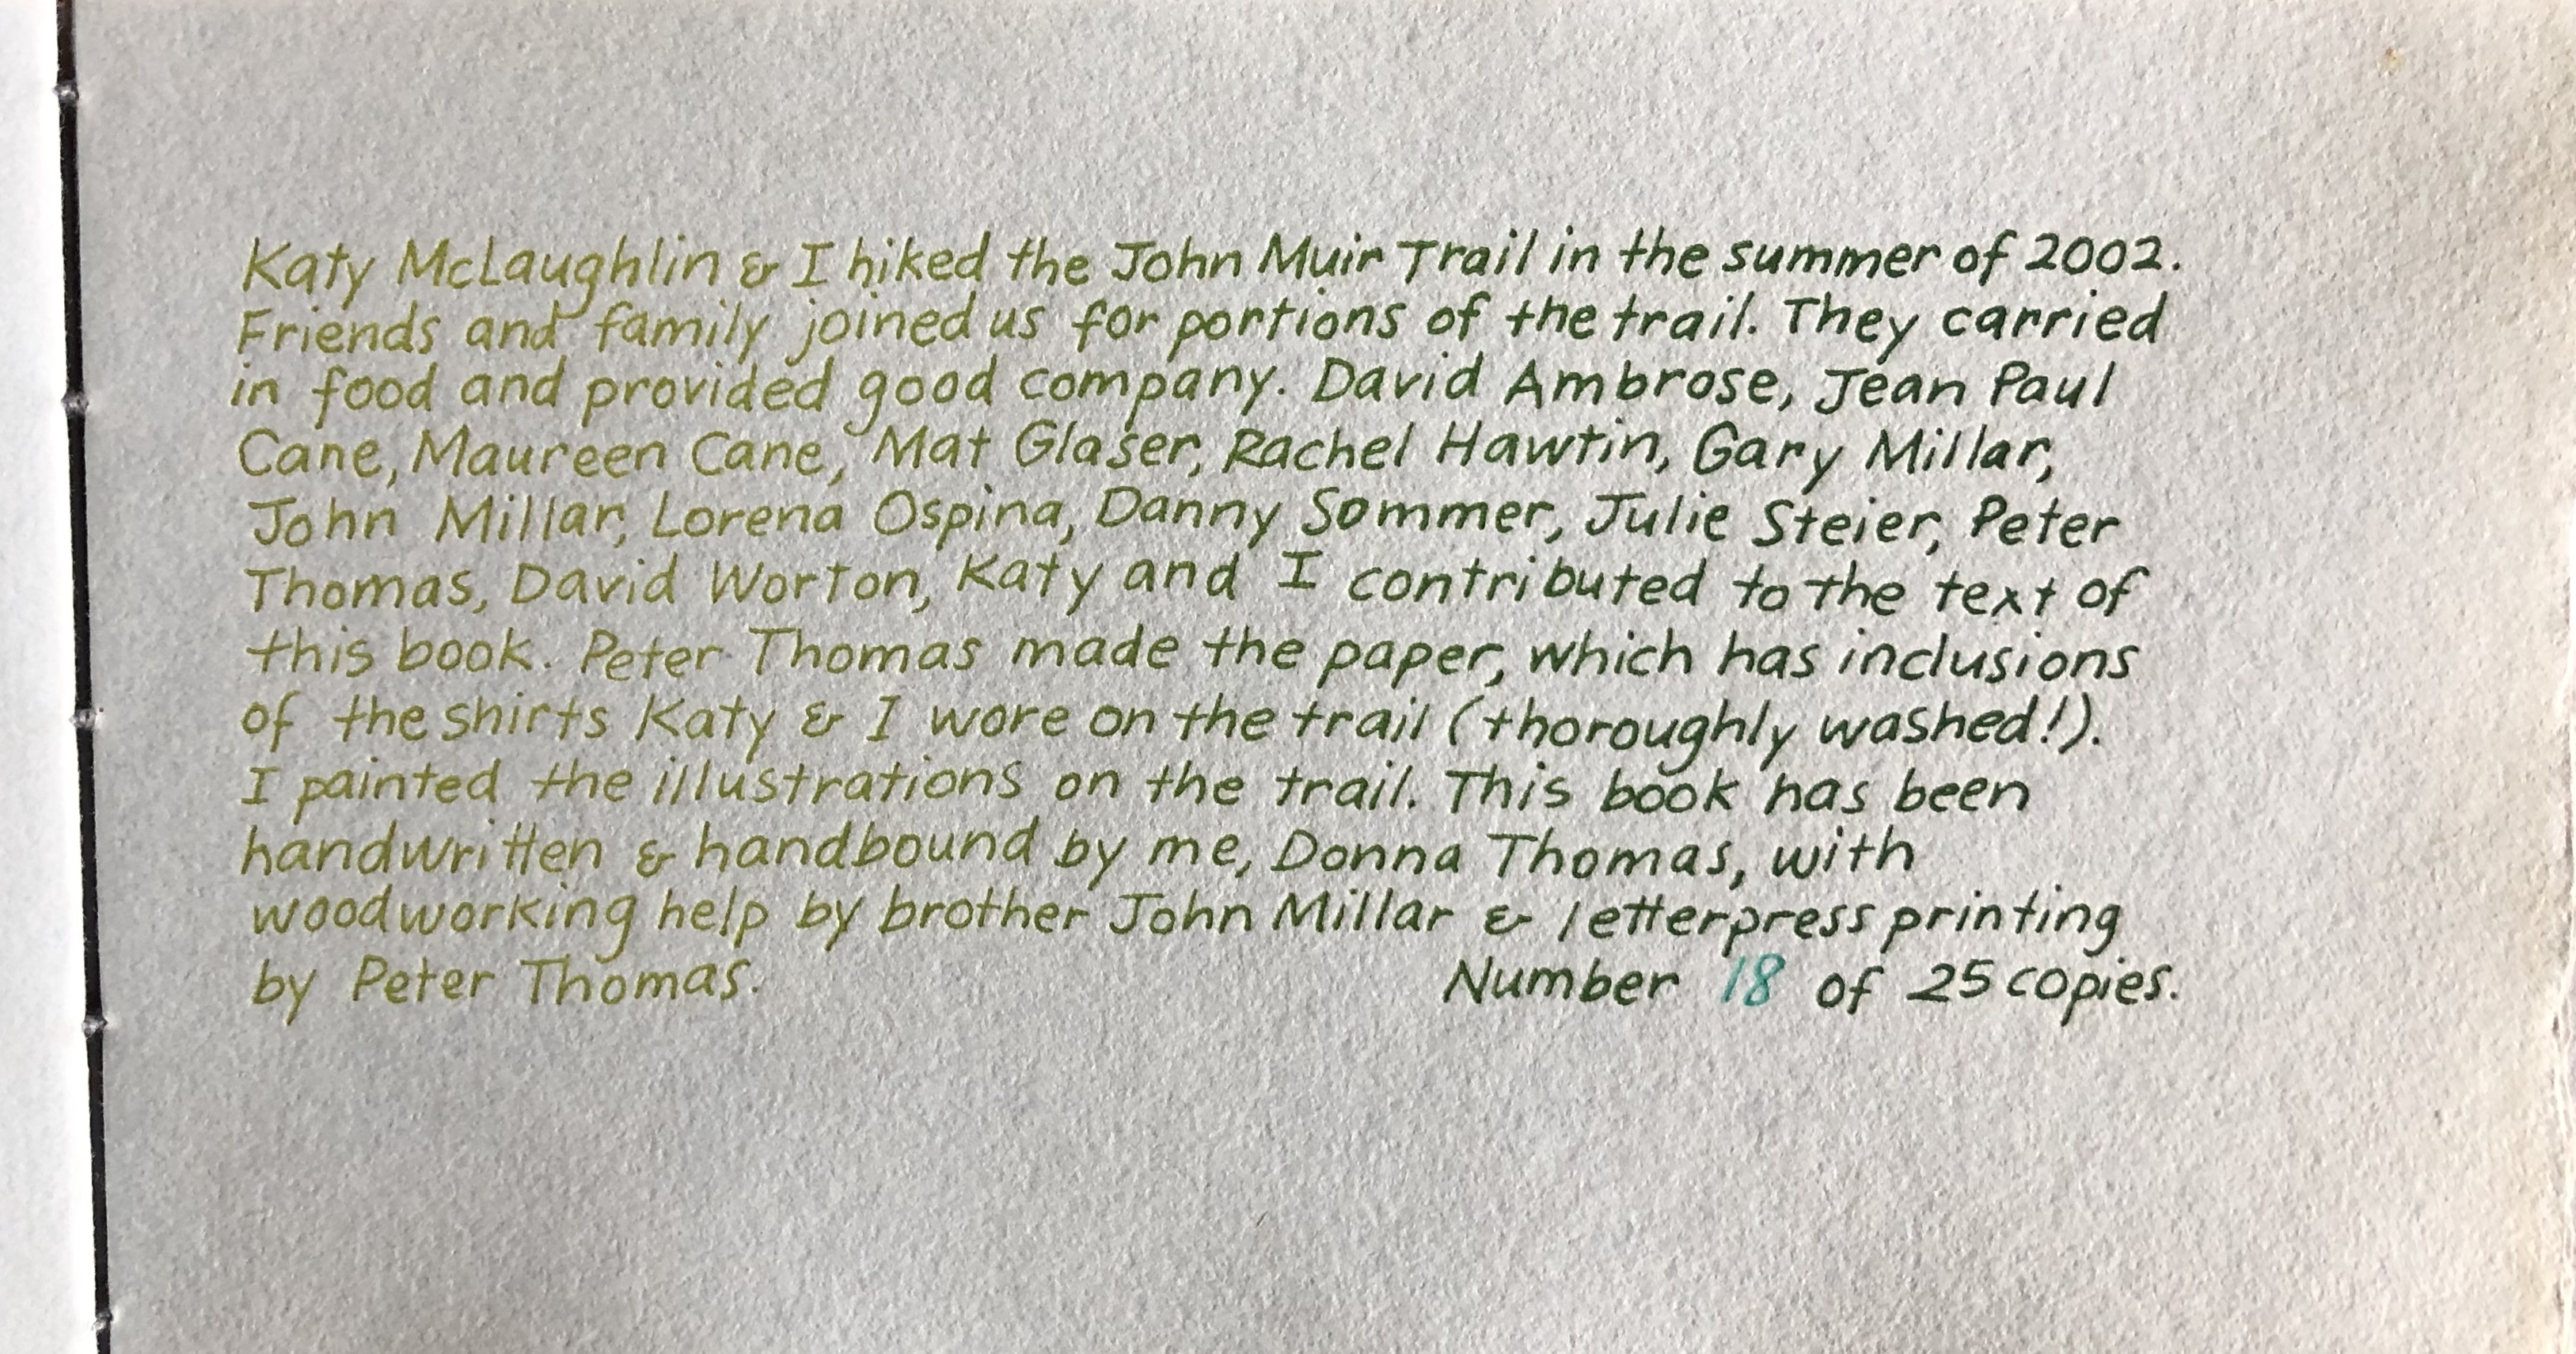 Katy McLaughlin & I hiked the John Muir Trail in the summer of 2002.
Friends and family joined us for portions of the trail. They carried
in food and provided good company. David Ambrose, Jean Paul
Cane, Maureen Cane, Mat Glaser, Rachel Hawtin, Gary Millar,
John Millar, Lorena Ospina, Danny Sommer, Julie Steier, Peter
Thomas, David Worton, Katy and I contributed to the text of
this book. Peter Thomas made the paper, which has inclusions
of the shirts Katy & I wore on the trail (thoroughly washed!).
I painted the illustrations on the trail. This book has been
handwritten & handbound by me, Donna Thomas, with
woodworking help by brother John Millar & letterpress printing
by Peter Thomas. Number 18 of 25 copies.